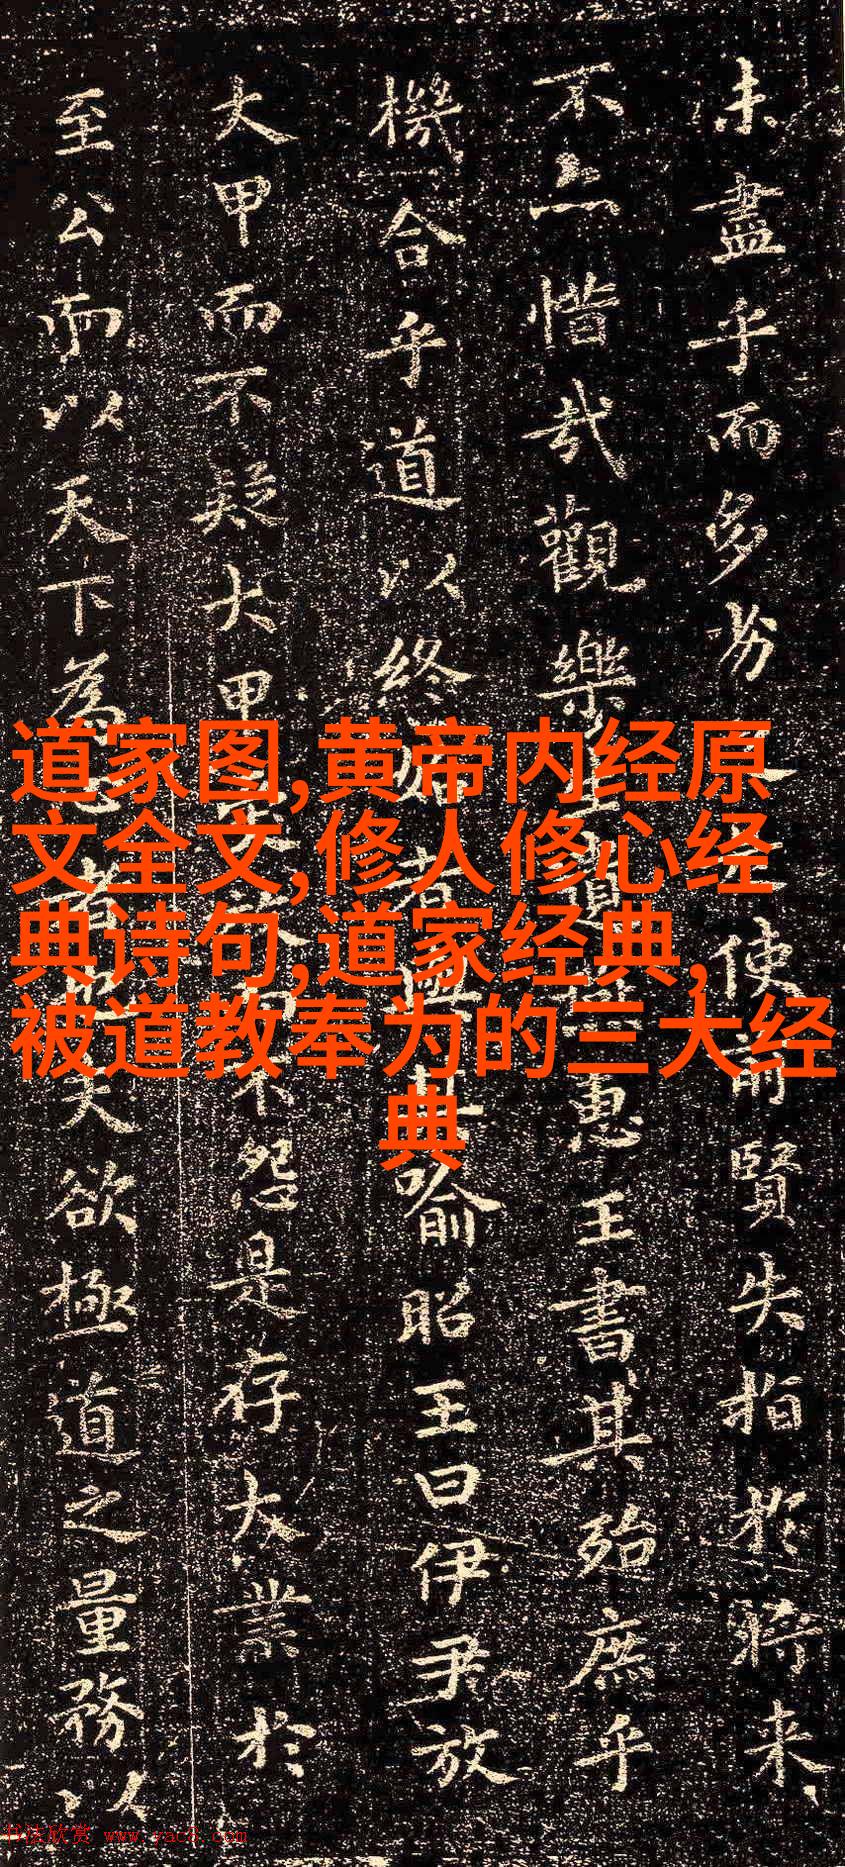 道家图,黄帝内经原
文全文,修人修心经
典诗句,道家经典,
被道教奉为的三大经
典
未盡乎而多劣之是使前賢失指於將来
不亦惜哉觀樂生遺燕惠王書其殆庶乎
機合乎道以終始者與其喻昭王曰伊尹放
大甲而不疑大甲受放而不怨是存大業於
至公而以天下為心者也夫欲極道之量務以
书法欣赏 www.yac8.com